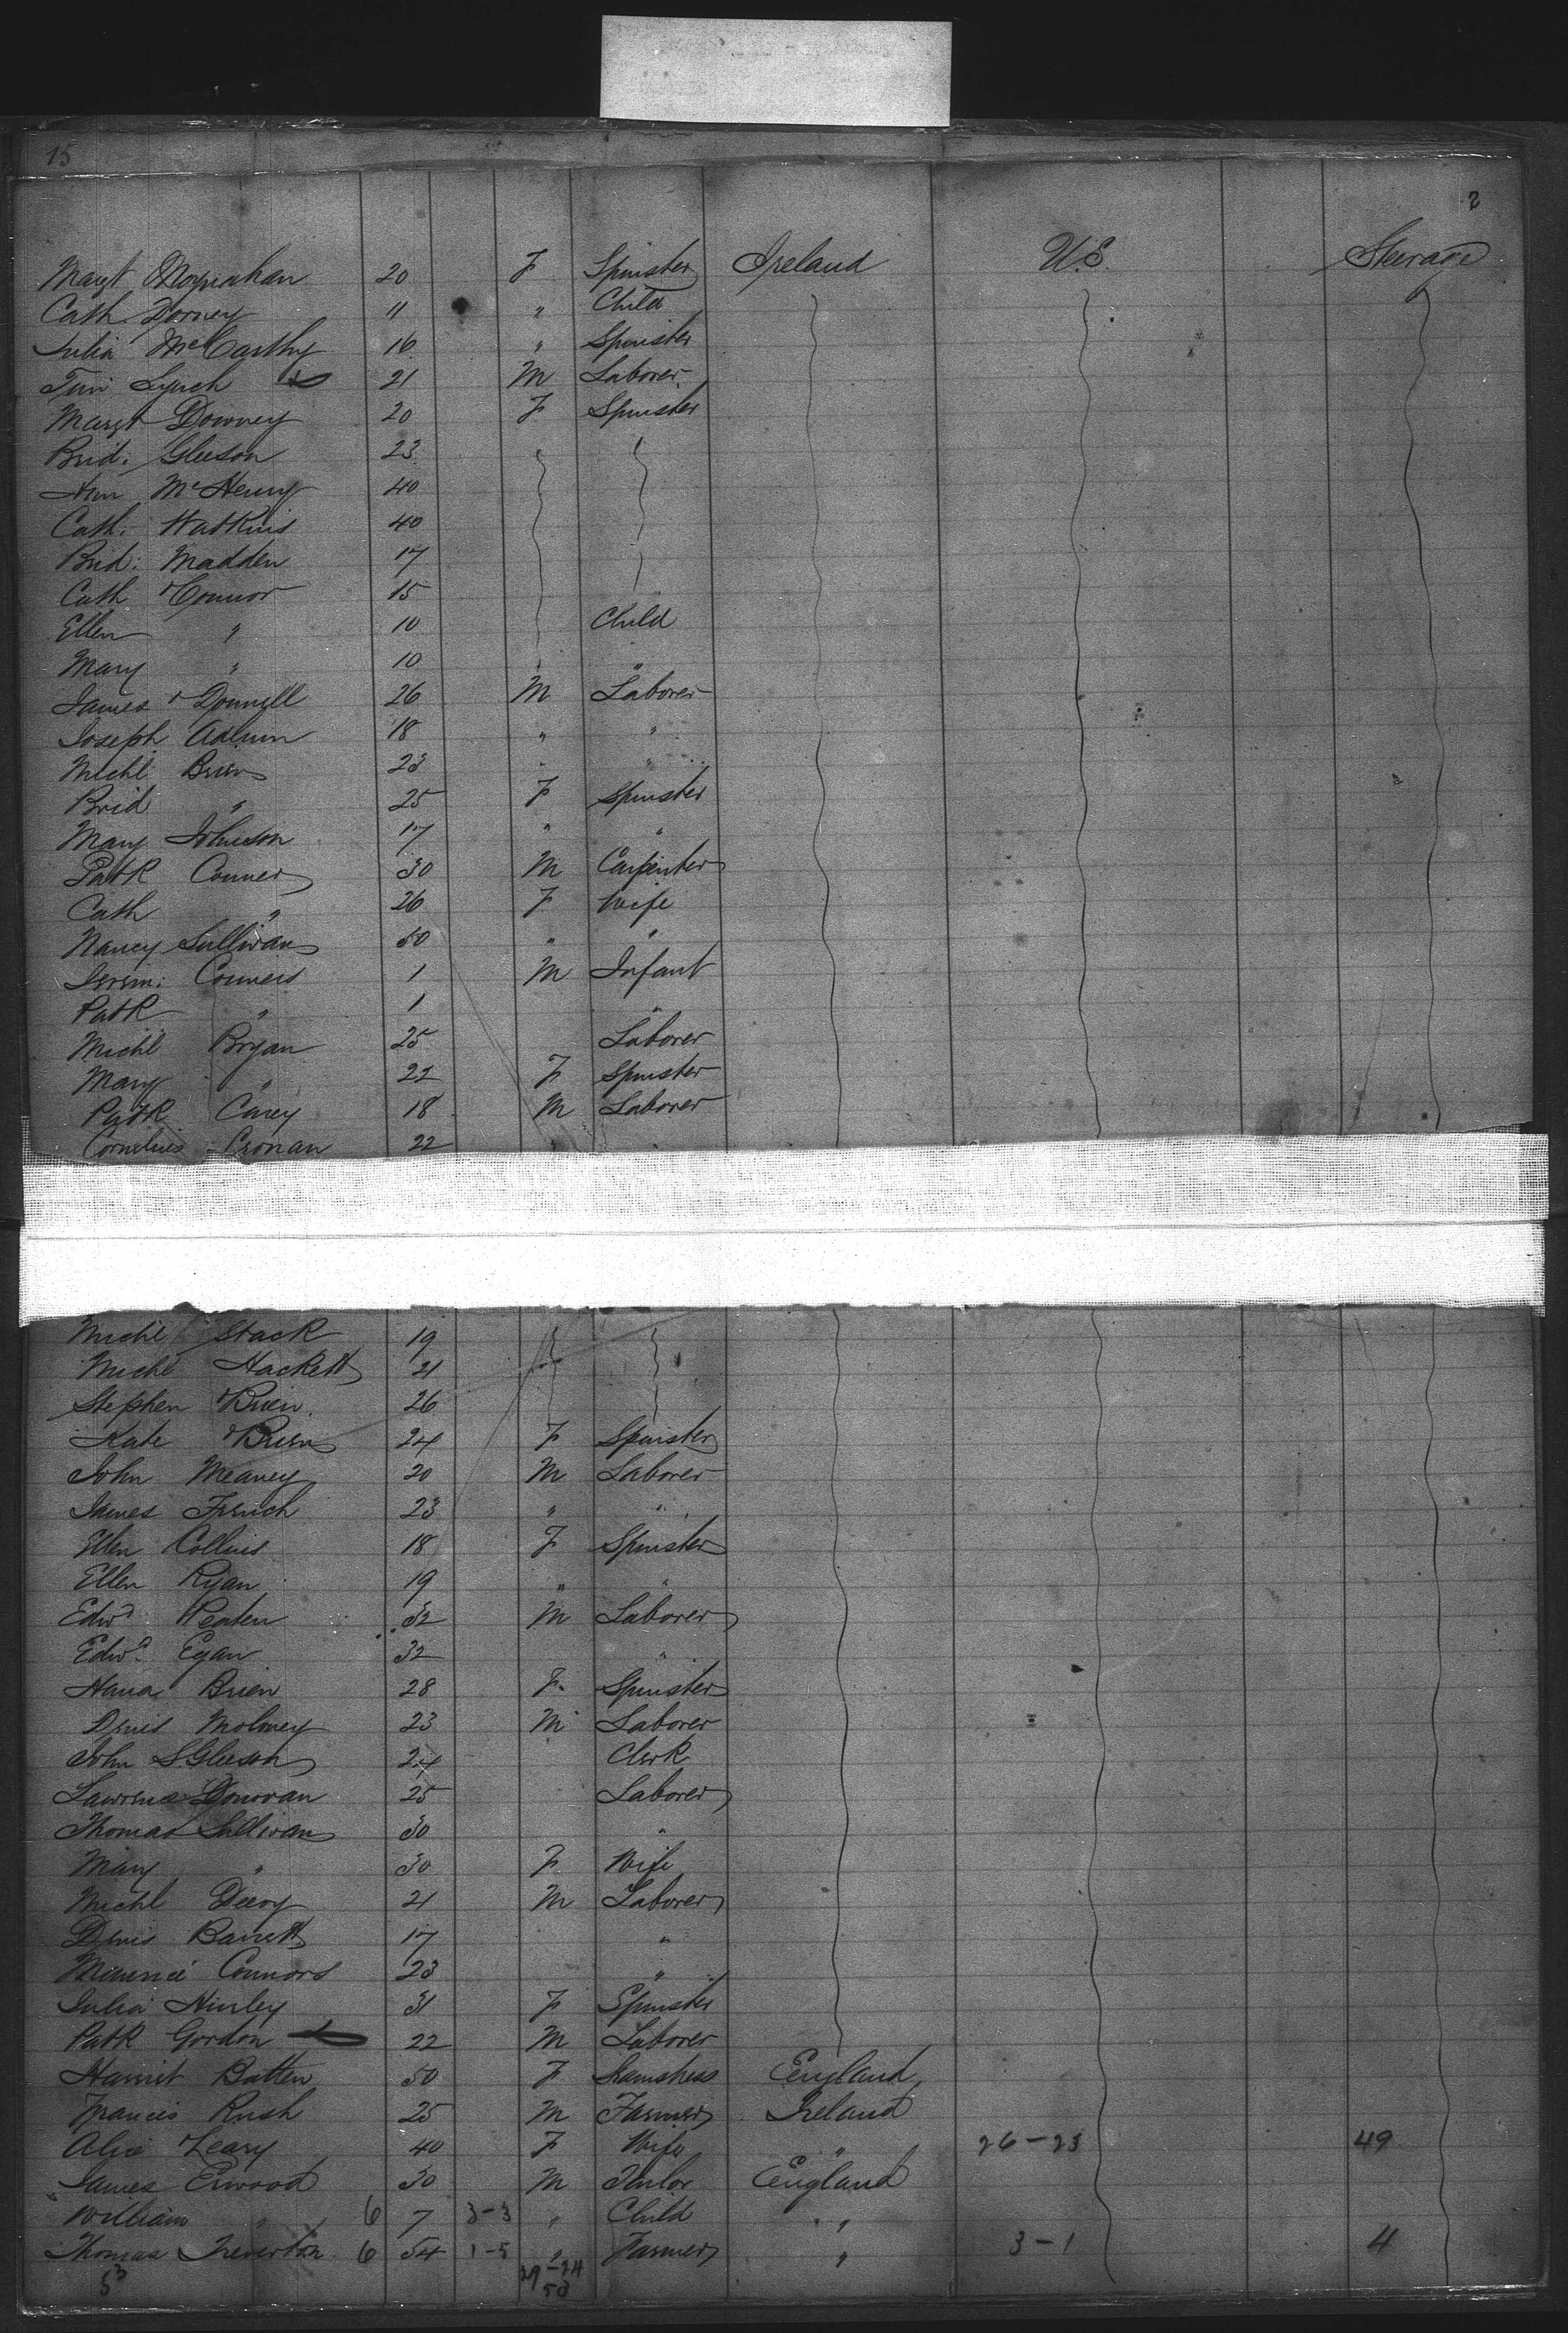 15
2
Margt Moynahan 20 F Spinster Ireland U.S. Steerage
Cath Dorney 11 " Child
Julia McCarthy 16 " Spinster
Tim Lynch 21 M Laborer
Margt Downey 20 F Spinster
Brid: Gleeson 23
Ann McHenry 40
Cath: Watkins 40
Brid: Madden 17
Cath Connor 15
Ellen " 10 Child
Mary " 10 "
James Donnell 26 M Laborer
Joseph Adlum 18 " "
Michl Brien 23 " "
Brid " 25 F Spinster
Mary Johnson 17 " "
Patk Conners 30 M Carpenter
Cath " 26 F Wife
Nancy Sullivan 50 " "
Jerem: Conners 1 M Infant
Patk " 1 "
Michl Bryan 25 Laborer
Mary " 22 F Spinster
Patk Carey 18 M Laborer
Cornelius Cronan 22
Michl Stack 19
Michl Hackett 21
Stephen Brien 26
Kate Brien 24 F Spinster
John Meaney 20 M Laborer
James French 23 " "
Ellen Collins 18 F Spinster
Ellen Ryan 19 " "
Edwd Peaten 32 M Laborer
Edwd Egan 32 "
Hana Brien 28 F Spinster
Denis Moloney 23 M Laborer
John S Gleeson 24 Clerk
Lawrence Donovan 25 Laborer
Thomas Sullivan 30 "
Mary " 30 F Wife
Michl Deevy 21 M Laborer
Denis Barrett 17 "
Maurice Connors 23 "
Julia Hurley 31 F Spinster
Patk Gordon 22 M Laborer
Harriet Batten 50 F Seamstress England
Francis Rush 25 M Farmer Ireland
Alice Leary 40 F Wife " 26-23 49
James Erwood 30 M Tailor England
William " 6 7 3-3 " Child "
Thomas Treverton 6 54 1-5 " Farmer " 3-1 4
53 29-24
53